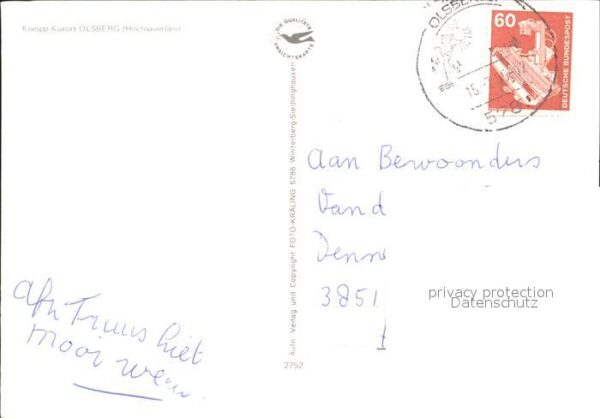 Kneipp-Kurort OLSBERG /Hochsauerland
DIE QUALITÄTS
ANSICHTSKARTE
OLSBERG
15.
578
60
DEUTSCHE BUNDESPOST
Aufn. Verlag und Copyright FOTO-KRÄLING 5788 Winterberg-Siedlinghausen
2752
Aan Bewoonders
Vand
Denn
3851
privacy protection
Datenschutz
afz Truus hiet
mooi weer